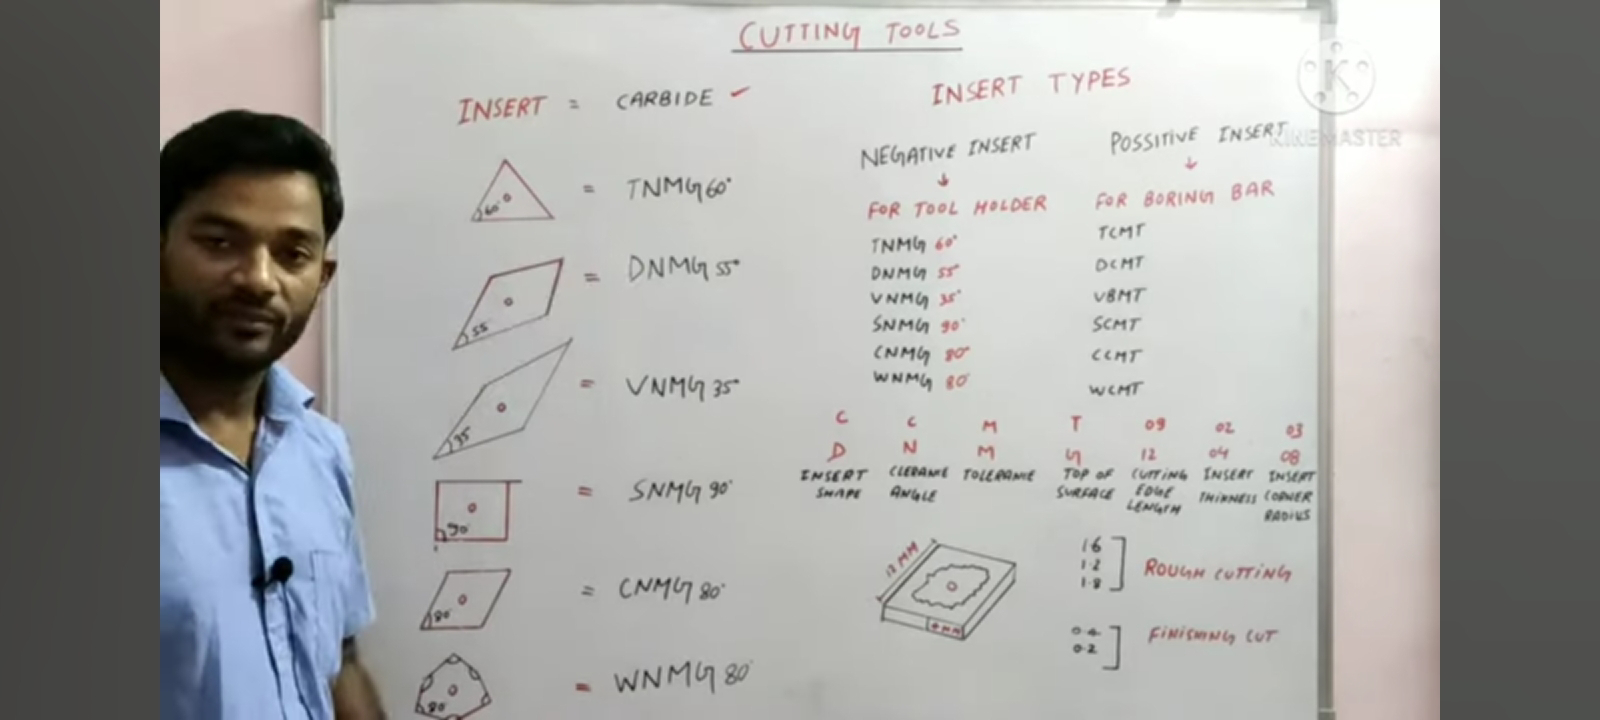 CUTTING TOOLS
INSERT = CARBIDE
60°
= TNMG 60°
55
= DNMG 55°
35
= VNMG 35°
90
= SNMG 90°
80
= CNMG 80°
80
= WNMG 80°
INSERT TYPES
NEGATIVE INSERT
FOR TOOL HOLDER
TNMG 60°
DNMG 55°
VNMG 35°
SNMG 90°
CNMG 80°
WNMG 80°
POSSITIVE INSERT
FOR BORING BAR
TCMT
DCMT
VBMT
SCMT
CCMT
WCMT
C C M T 09 02 03
D N M G 12 04 08
INSERT SHAPE
ANGLE
TOP OF SURFACE
CUTTING EDGE LENGTH
INSERT
INSERT CORNER RADIUS
12 MM
4 MM
1.6
1.2
1.8
ROUGH CUTTING
0.4
0.2
FINISHING CUT
K
KINEMASTER